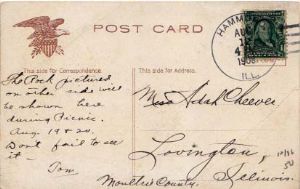 POST CARD
HAMMO
AUG
18
4 P
1908
ILL.
This side for Correspondence.
This side for Address.
The Rock pictured
on other side will
be shown here
during Picnic.
Aug. 19 & 20.
Dont fail to see
it
Tom.
Miss Adah Cheever
Lovington,
Moultrie County.
Illinois.